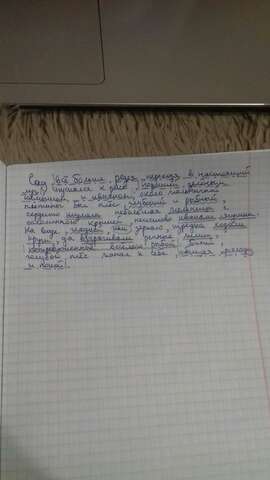 Сад, всё больше редея, переходя в настоящий
луг, спускался к реке, поросшей зелёным
камышом и ивняком; около мельничной
плотины был плёс, глубокий и рыбный,
сердито шумела небольшая мельница с
соломенною крышей, неистово квакали лягушки.
На воде, гладкой, как зеркало, изредка ходили
круги, да вздрагивали речные лилии,
потревоженные весёлою рыбой.
голубой плёс манил к себе, обещая прохладу
и покой.